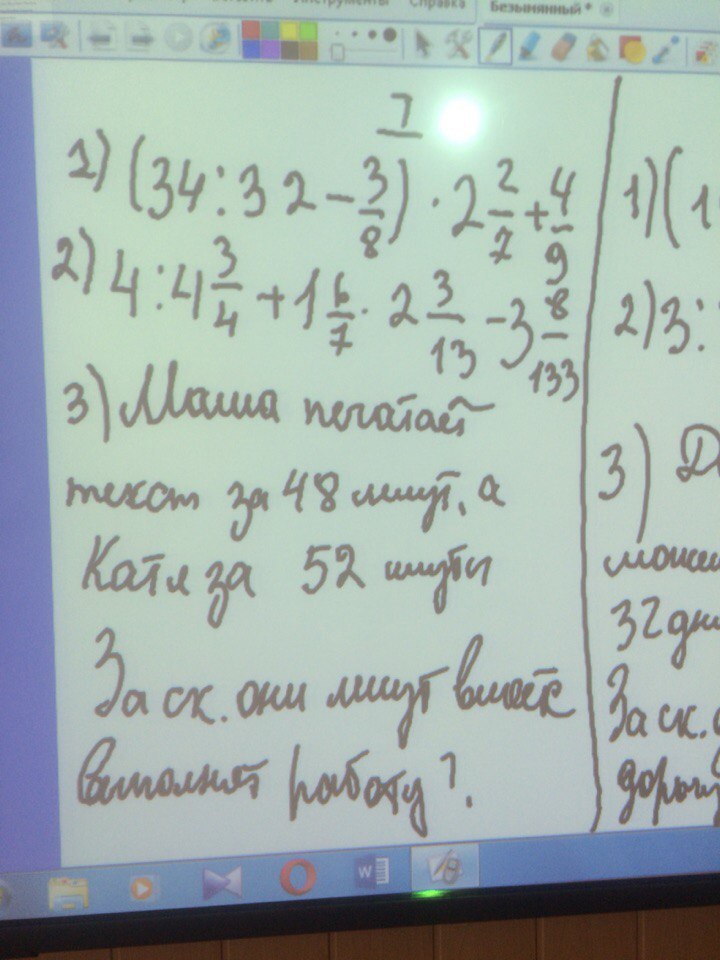 Справка
Безымянный *
7
1) (34:32 - 3/8) · 2 2/7 + 4/9
2) 4:4 3/4 + 1 6/7 · 2 3/13 - 3 8/133
3) Маша печатает
текст за 48 минут, а
Катя за 52 минуты
За ск. они минут вместе
выполнят работу?
1) (1
2) 3:
3) Д
32 дн
За ск.